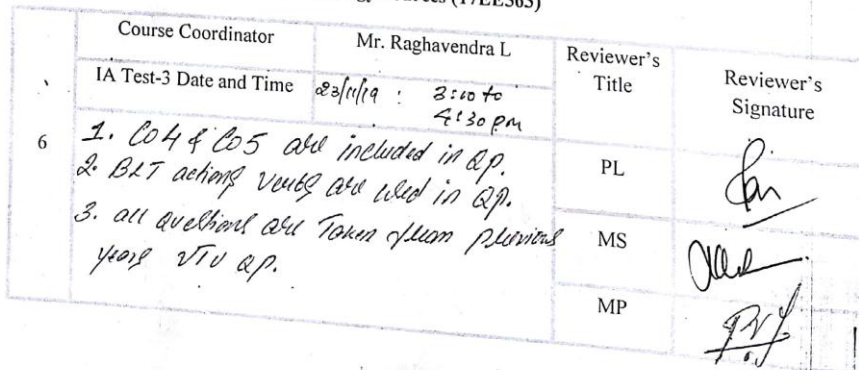 (17EE563)
Course Coordinator
Mr. Raghavendra L
Reviewer's Title
Reviewer's Signature
IA Test-3 Date and Time
23/11/19 : 3:00 to 4:30 pm
6
1. Co4 & Co5 are included in QP.
2. BLT actions verbs are used in QP.
3. all questions are Taken from previous
years VTU QP.
PL
MS
MP